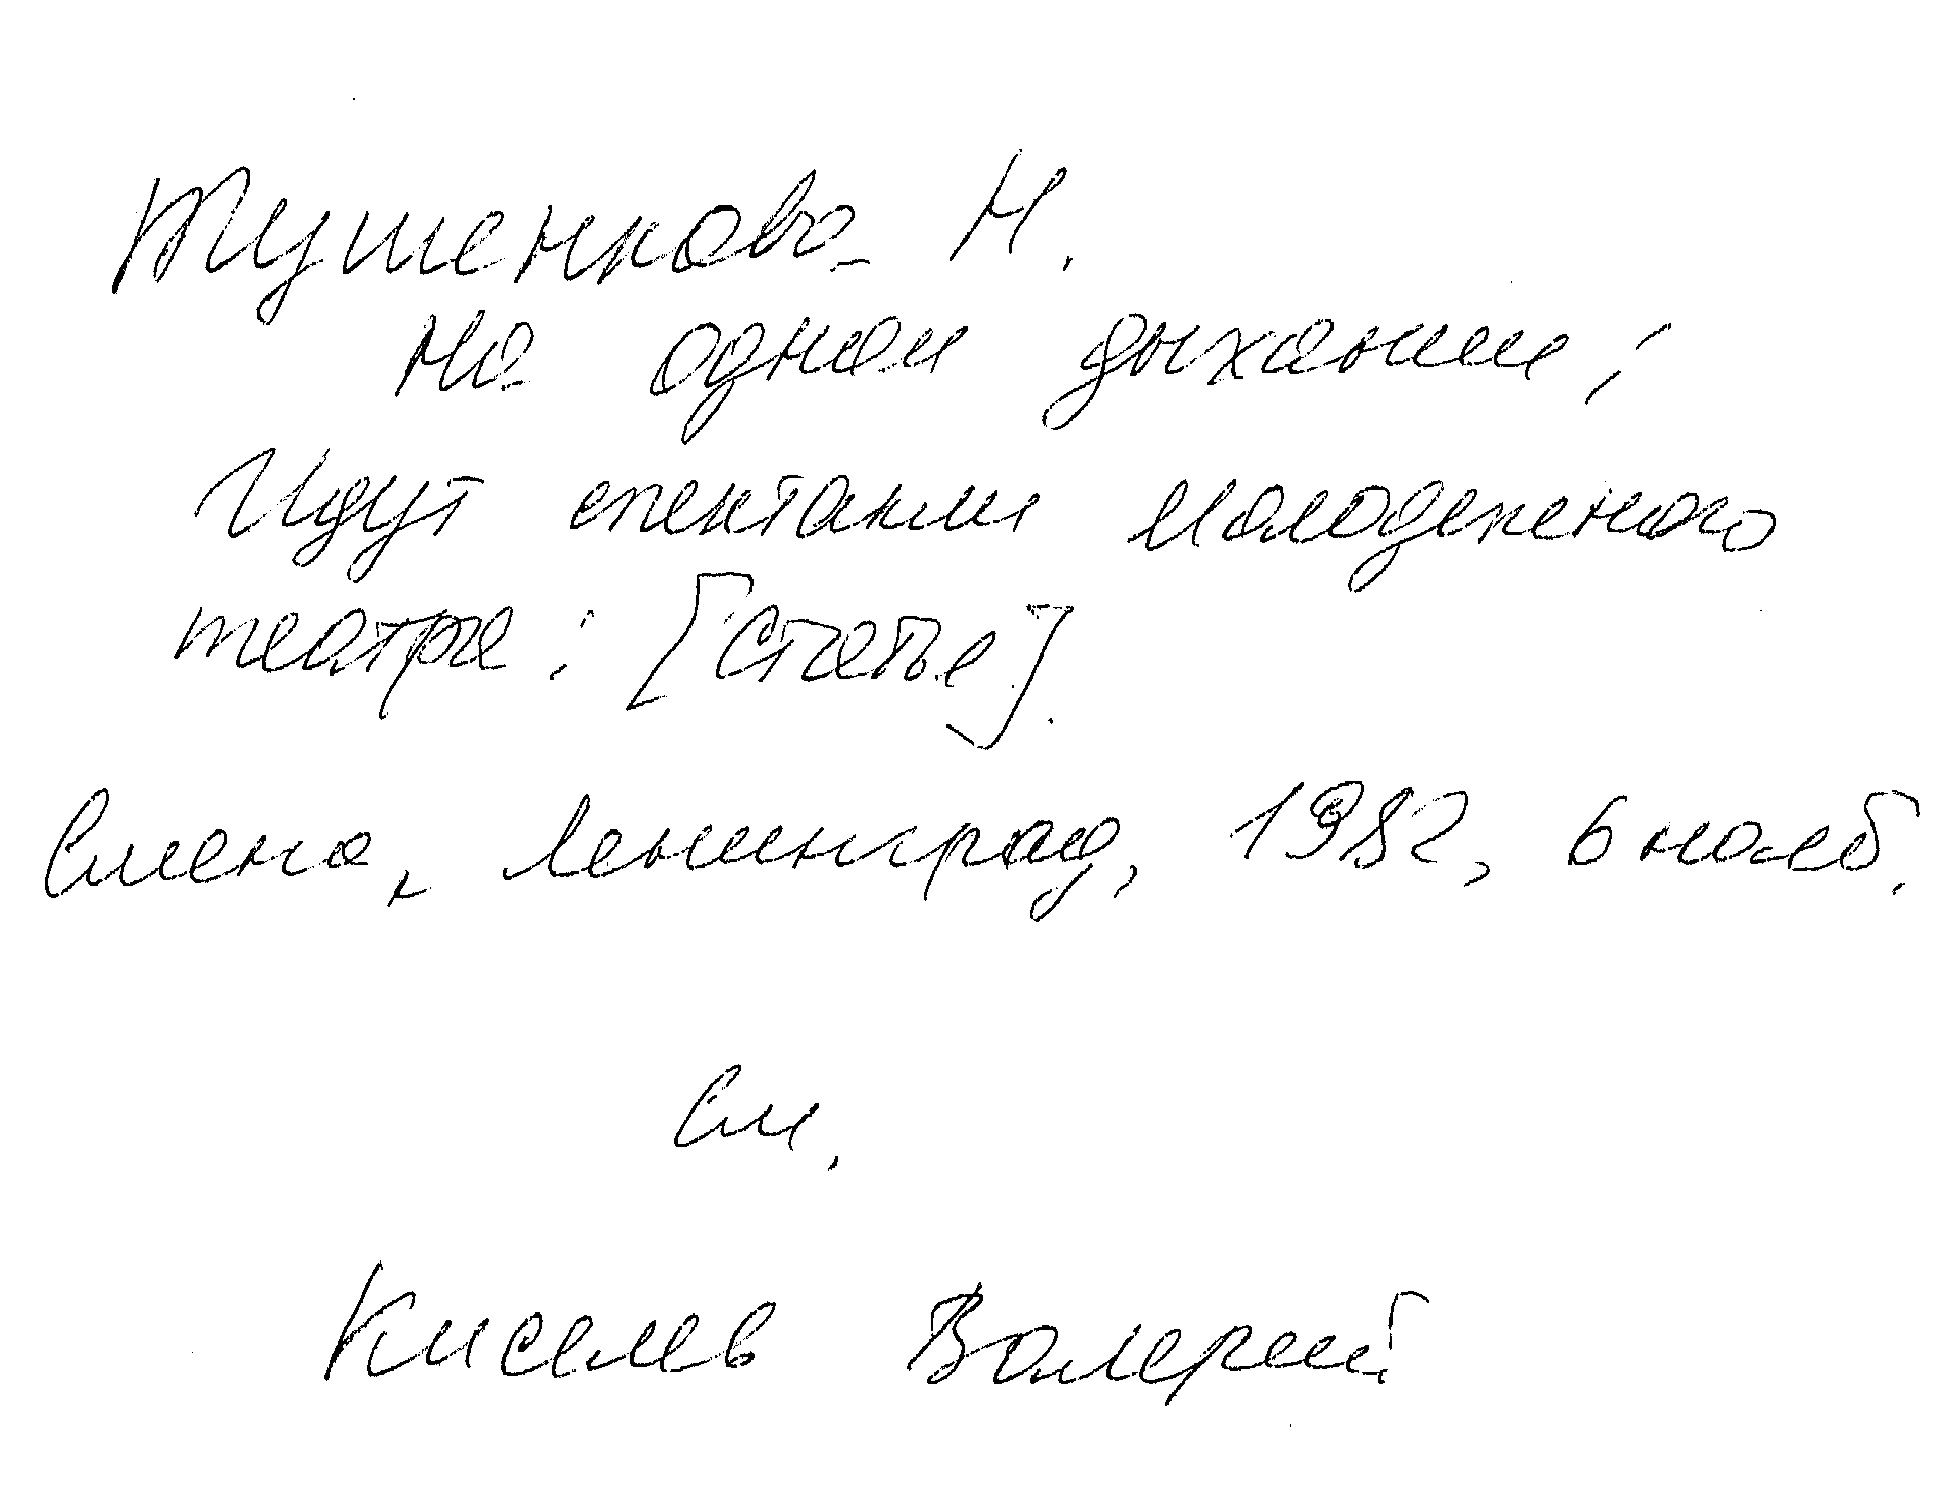 Тушенкова Н.
На одном дыхании:
Идут спектакли молодежного
театра: [Статья].
Смена, Ленинград, 1982, 6 нояб.
См.
Киселев Валерий